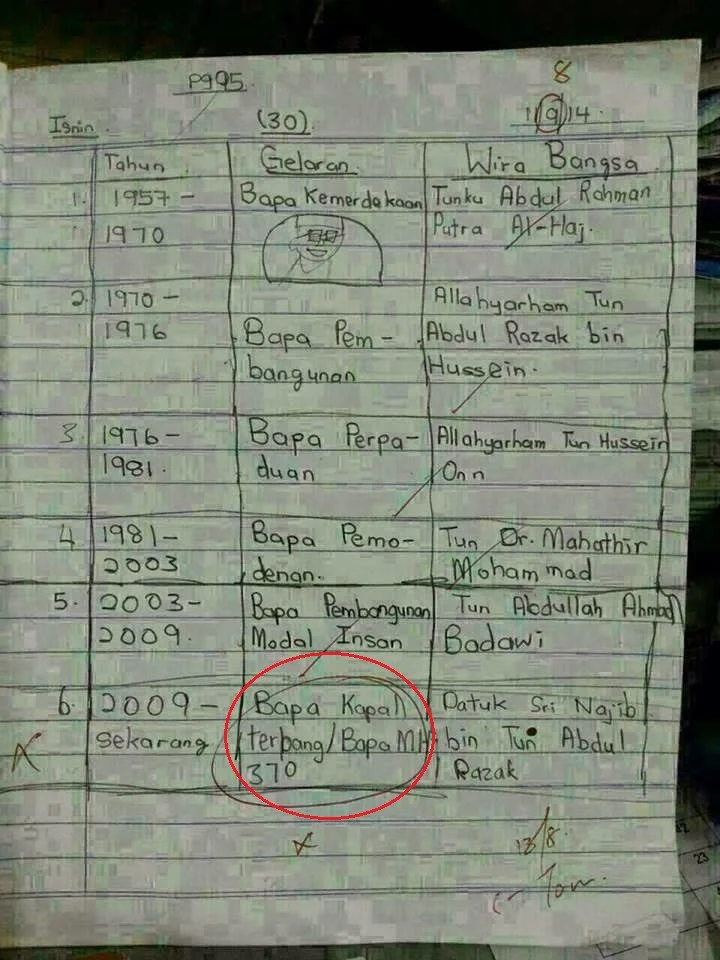 P995
8
Isnin. (30). 1 9 14.
Tahun Gelaran Wira Bangsa
1. 1957 - Bapa Kemerdekaan Tunku Abdul Rahman
1970 Putra Al-Haj.
2. 1970 - Allahyarham Tun
1976 Bapa Pem- Abdul Razak bin
bangunan Hussein.
3. 1976 - Bapa Perpa- Allahyarham Tun Hussein
1981. duan Onn
4 1981 - Bapa Pemo- Tun Dr. Mahathir
2003 denan. Mohammad
5. 2003 - Bapa Pembangunan Tun Abdullah Ahmad
2009. Modal Insan Badawi
6. 2009 - Bapa Kapal Datuk Sri Najib
sekarang terbang/Bapa MH bin Tun Abdul
370 Razak
13/8.
23